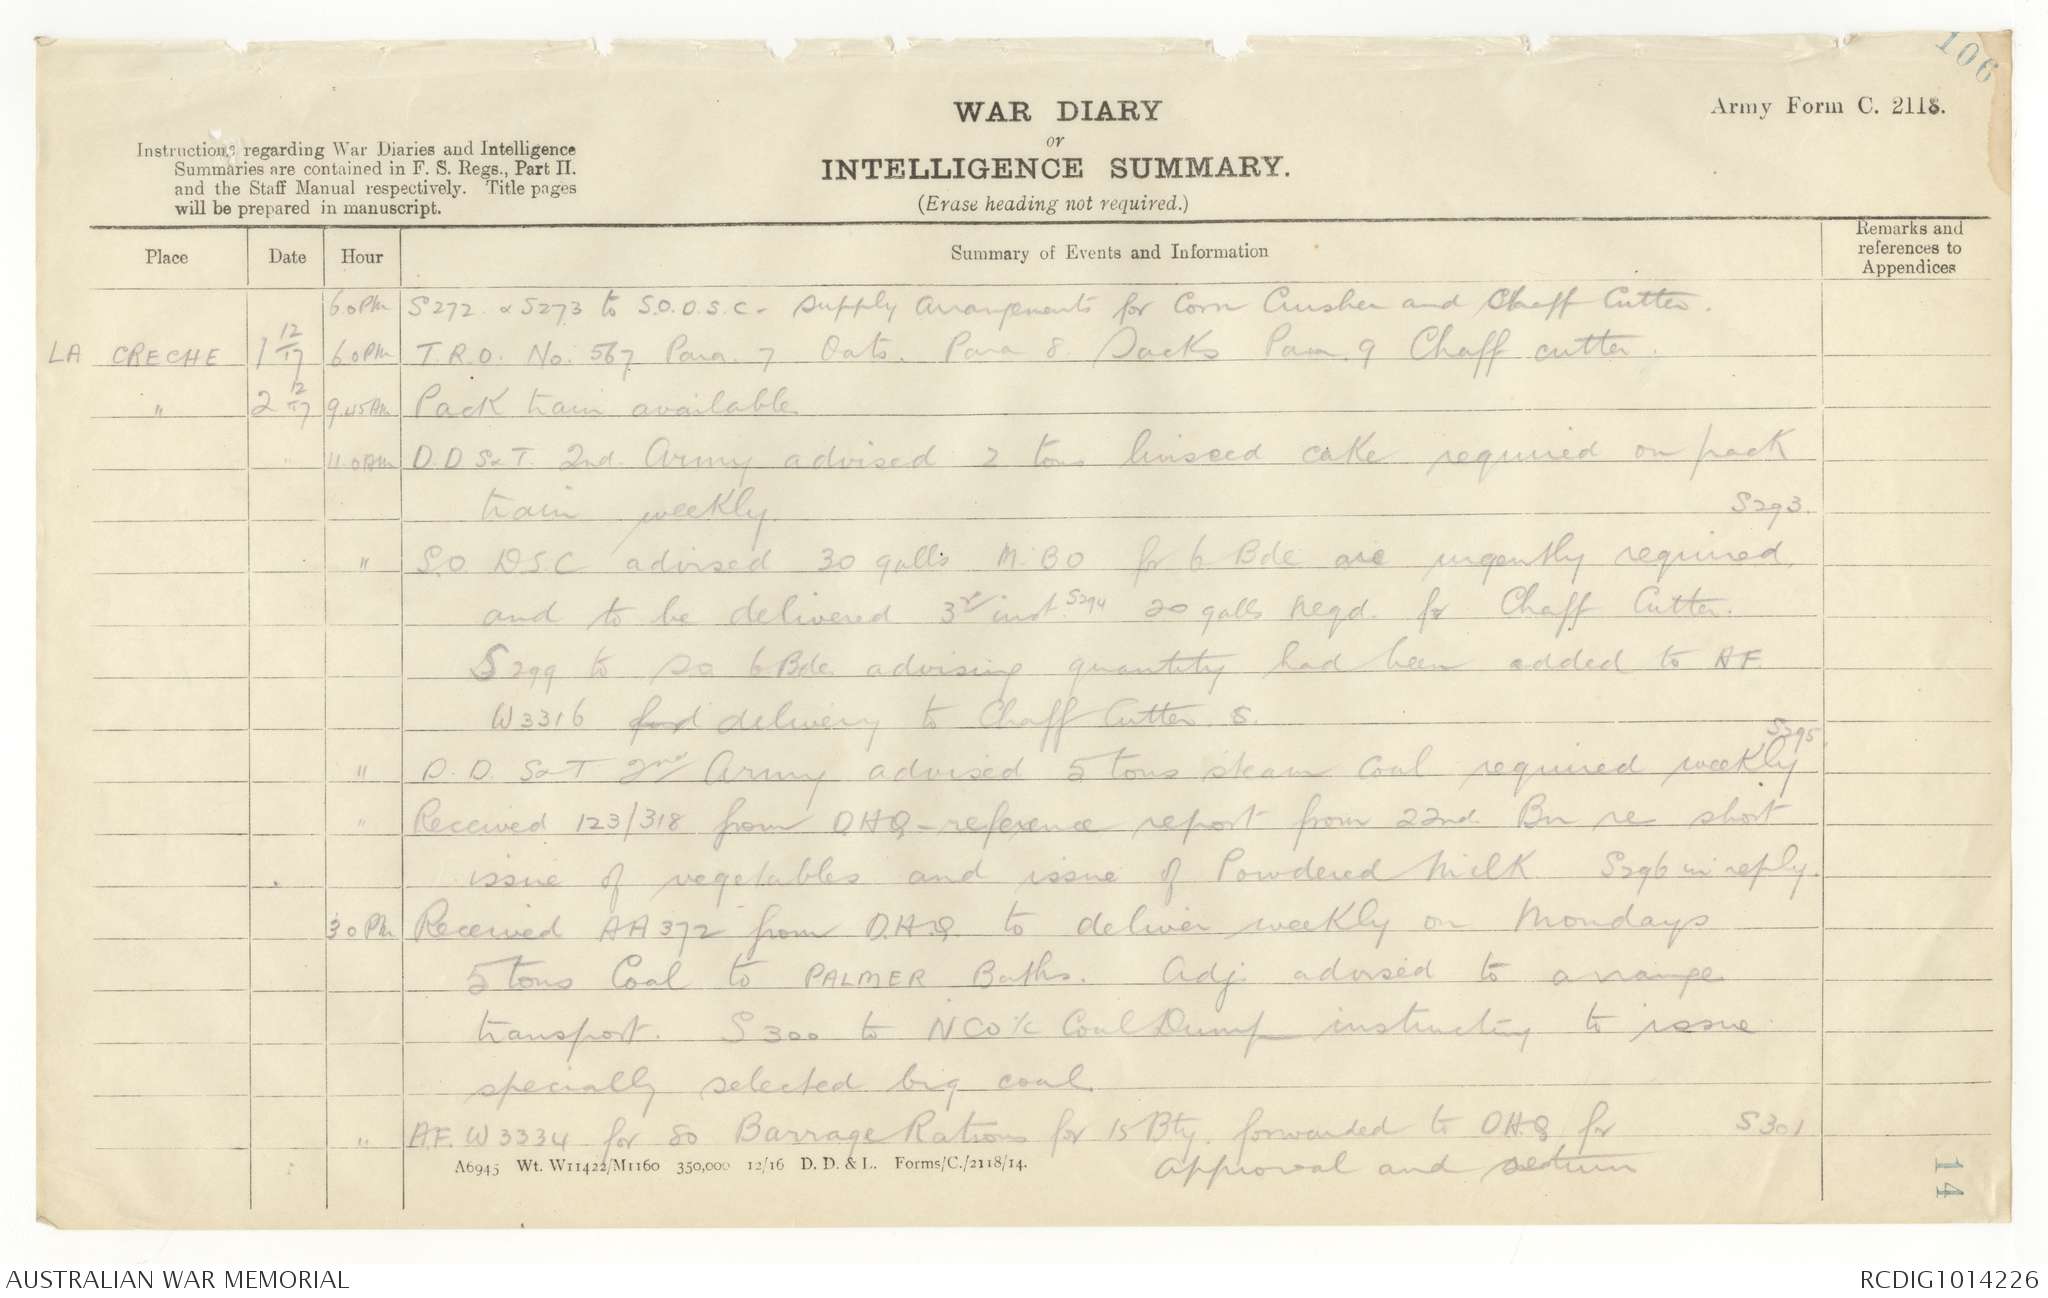 106
Army Form C. 2118.
WAR DIARY
or
INTELLIGENCE SUMMARY.
(Erase heading not required.)
Instructions regarding War Diaries and Intelligence
Summaries are contained in F. S. Regs., Part II.
and the Staff Manual respectively. Title pages
will be prepared in manuscript.
Place Date Hour Summary of Events and Information Remarks and references to Appendices
6.0PM S272 & S273 to S.O.D.S.C. - Supply Arrangements for Corn Crusher and Chaff Cutter.
LA CRECHE 1 12/17 6.0PM T.R.O. No. 567 Para. 7 Oats. Para 8. Sacks Para. 9 Chaff cutter.
" 2 12/17 9.45AM Pack train available.
11.0AM D.D S&T. 2nd. Army advised 2 tons linseed cake required on pack
train weekly. S293.
" S.O. D.S.C advised 30 galls M.B.O for 6 Bde are urgently required.
and to be delivered 3rd inst. S294 20 galls Reqd. for Chaff Cutter.
S299 to SO 6 Bde. advising quantity had been added to A F.
W3316 delivery to Chaff Cutter s.
S295.
" D.D. S&T 2nd Army advised 5 tons steam Coal required weekly
" Received 123/318 from DHQ - reference report from 22nd. Bn re short
issue of vegetables and issue of Powdered Milk S296 in reply.
3.0 PM Received AA372 from D.H.Q. to deliver weekly on Mondays
5 tons Coal to PALMER Baths. Adj. advised to arrange
transport. S300 to NCO i/c Coal Dump instructing to issue
specially selected big coal.
" A.F. W3334 for 80 Barrage Rations for 15 Bty. forwarded to DHQ for S301
approval and return
A6945 Wt. W11422/M1160 350,000 12/16 D. D. & L. Forms/C./2118/14.
14
AUSTRALIAN WAR MEMORIAL
RCDIG1014226